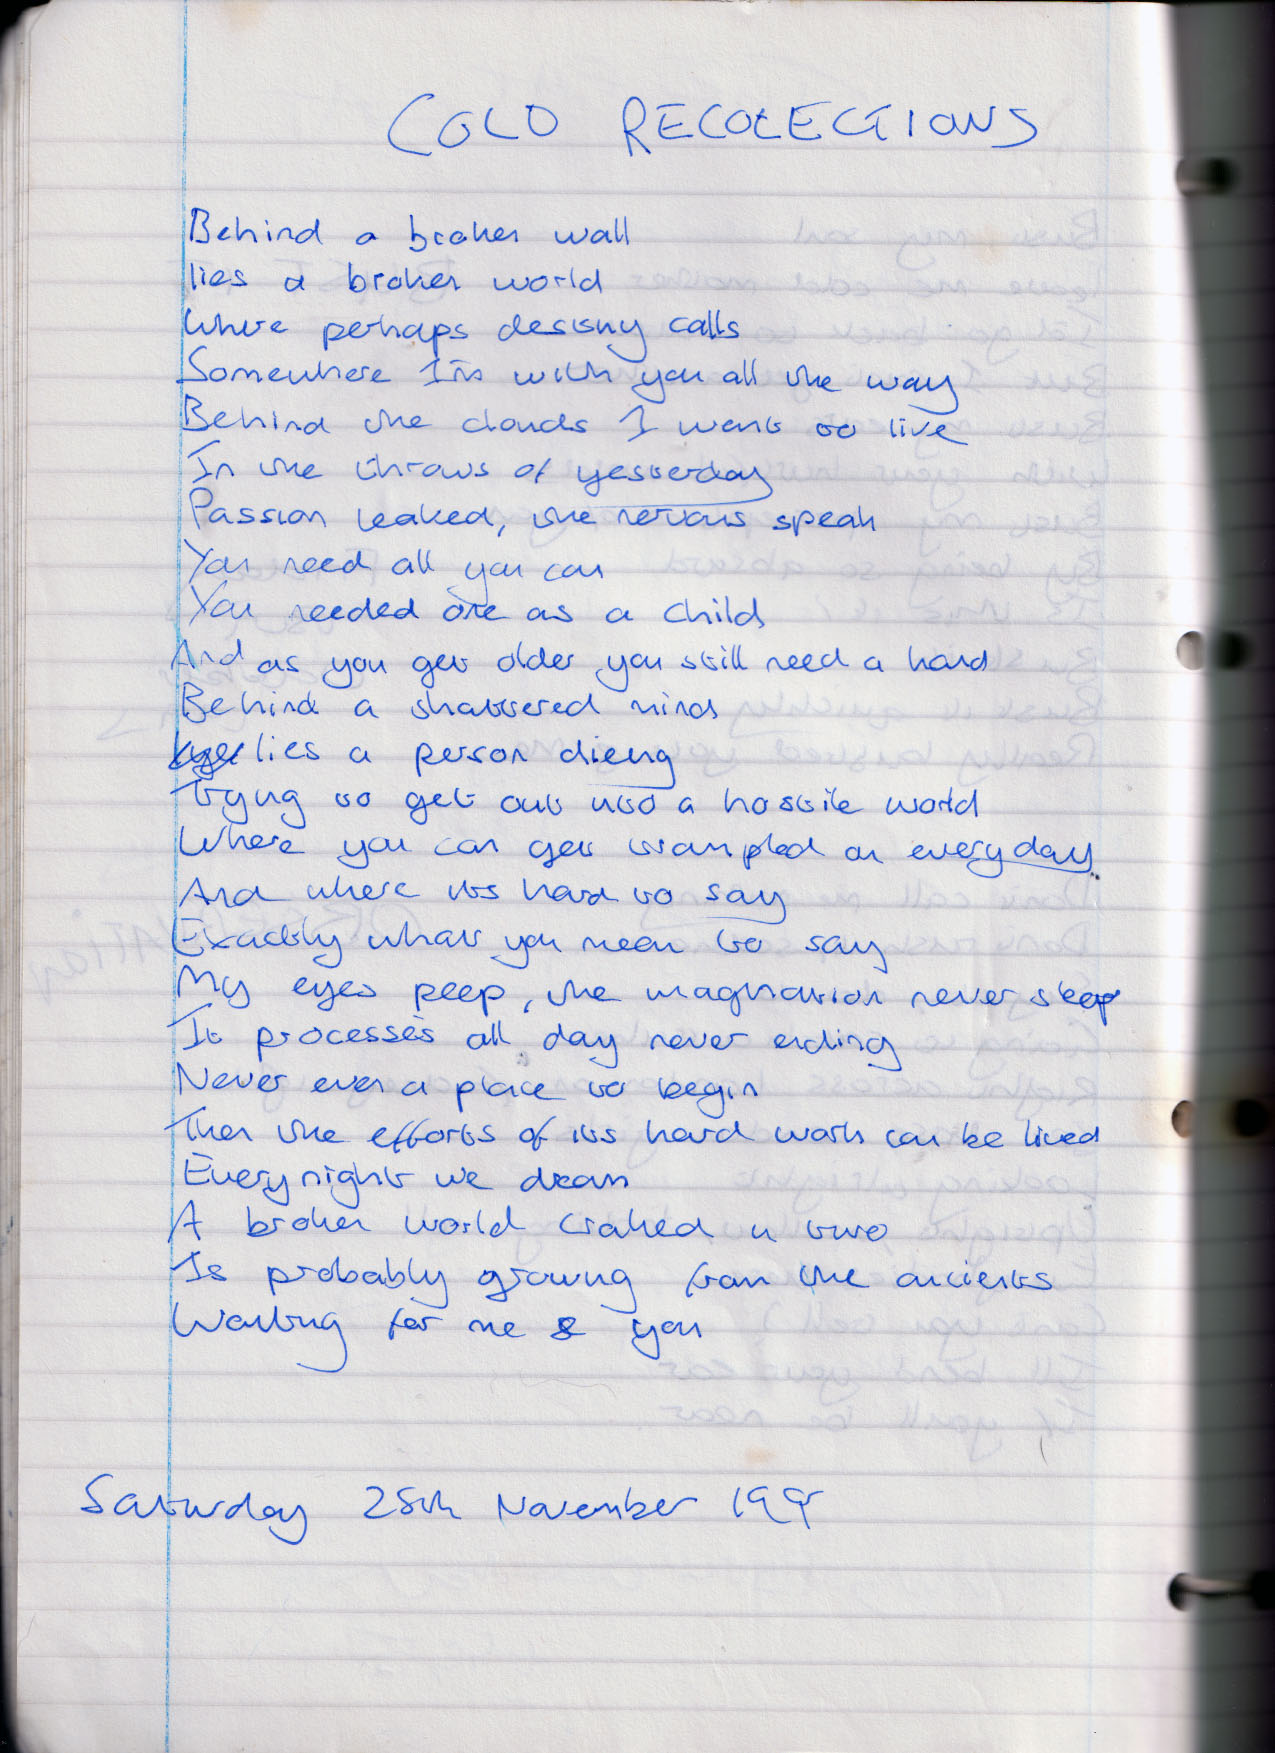 COLD RECOLECTIONS
Behind a broken wall
lies a broken world
Where perhaps destiny calls
Somewhere I'm with you all the way
Behind the clouds I want to live
In the throws of yesterday
Passion leaked, the nervous speak
You need all you can
You needed one as a child
And as you get older you still need a hand
Behind a shattered mind
lies a person dieing
Trying to get out into a hostile world
Where you can get trampled on everyday
And where its hard to say
Exactly what you mean to say
My eyes peep, the imagination never sleep
It processes all day never ending
Never even a place to begin
Then the efforts of its hard work can be lived
Every night we dream
A broken world craked in two
Is probably growing from the ancients
Waiting for me & you
Saturday 25th November 199